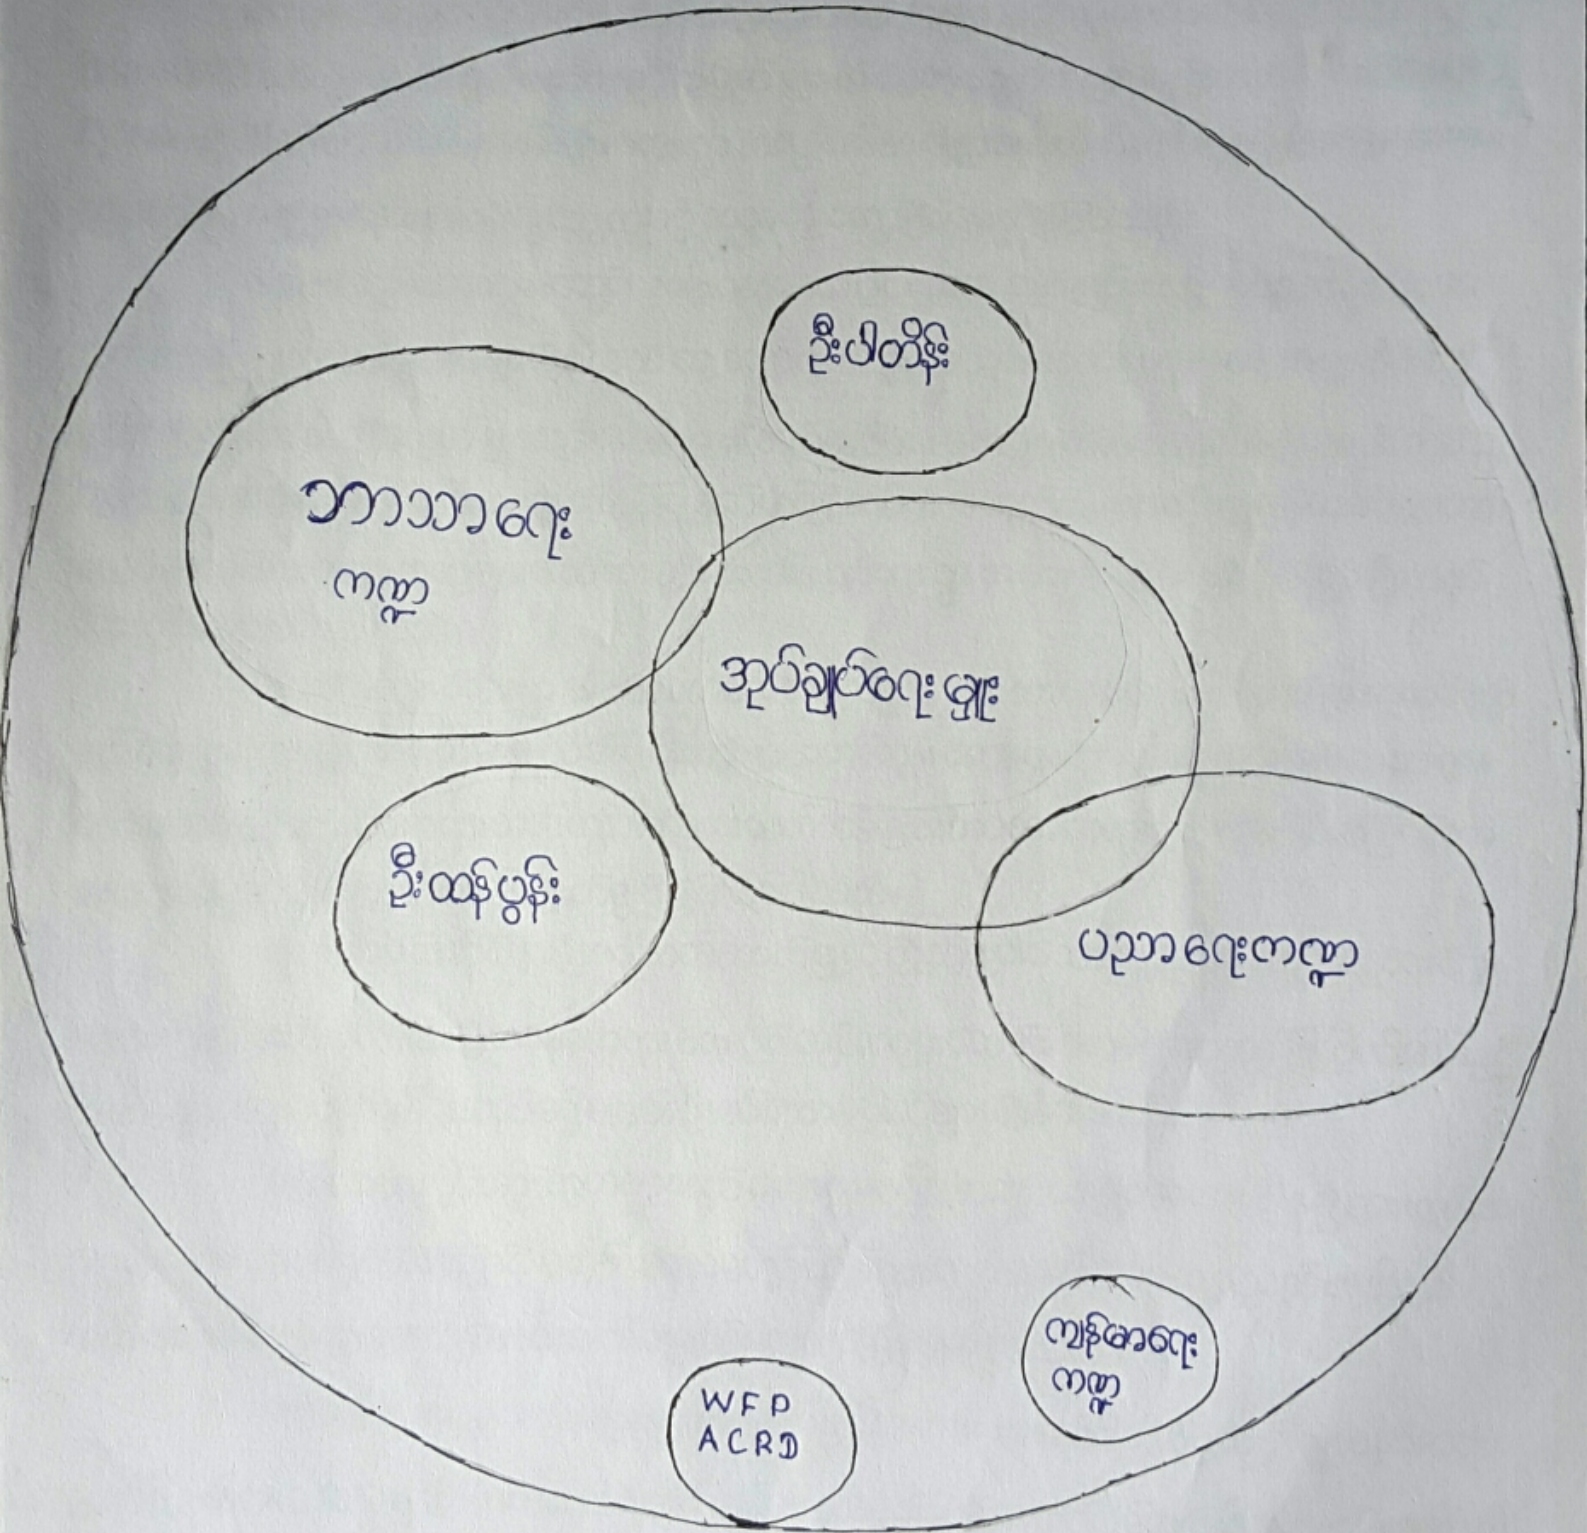 ဦးပါတိန်း
ဘာသာရေး
ကဏ္ဍ
အုပ်ချုပ်ရေးမှူး
ဦးထန်ပွန်း
ပညာရေးကဏ္ဍ
ကျန်မာရေး
ကဏ္ဍ
WFP
ACRD